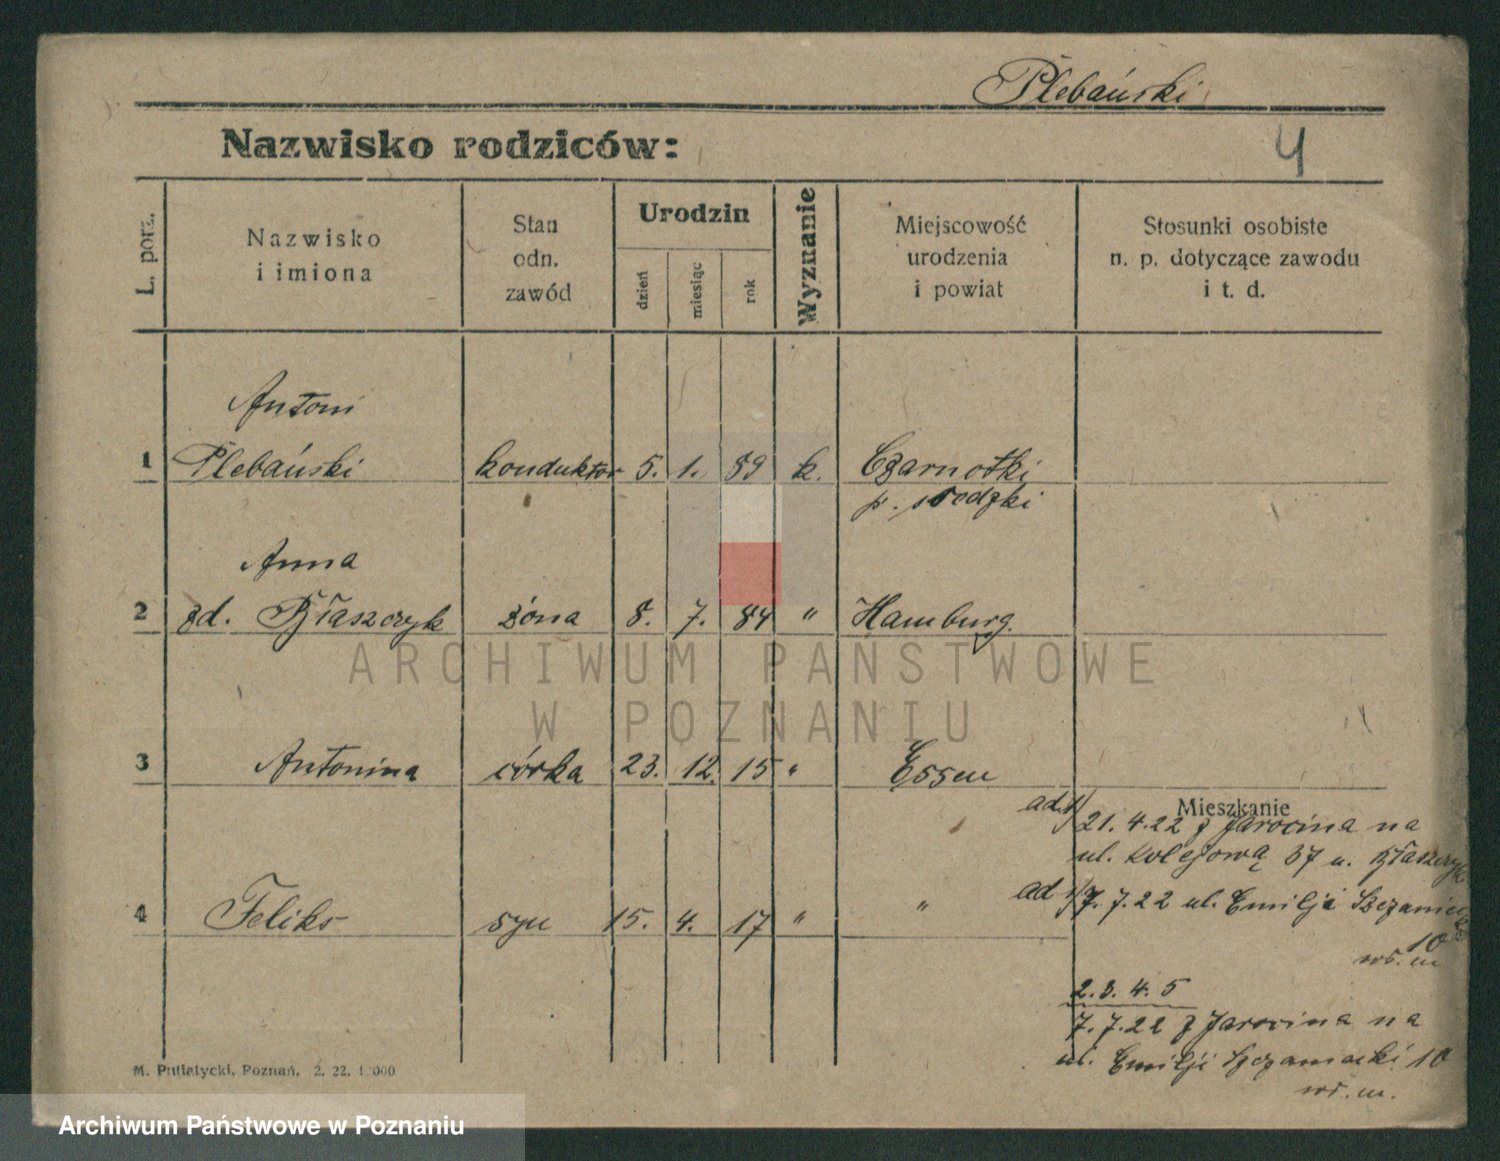 Plebański
Nazwisko rodziców:
4
L. porz.
Nazwisko
i imiona
Stan
odn.
zawód
Urodzin
dzień
miesiąc
rok
Wyznanie
Miejscowość
urodzenia
i powiat
Stosunki osobiste
n. p. dotyczące zawodu
i t. d.
Antoni
1 Plebański konduktor 5. 1. 89 k. Czarnotki
p. średzki
Anna
2 zd. Błaszczyk żona 8. 7. 84 " Hamburg.
3 Antonina córka 23. 12. 15 " Essen
Mieszkanie
ad 1/ 21. 4. 22 z Jarocina na
ul. Kolejową 37 u. Błaszczyk
4 Feliks syn 15. 4. 17 " "
ad 1/ 7. 7. 22 ul. Emilji
10
wł. m
2. 3. 4. 5
7. 7. 22 z Jarocina na
ul. Emilji 10
wł. m.
M. Putiatycki, Poznań. 2. 22. 1 000
ARCHIWUM PAŃSTWOWE
W POZNANIU
Archiwum Państwowe w Poznaniu